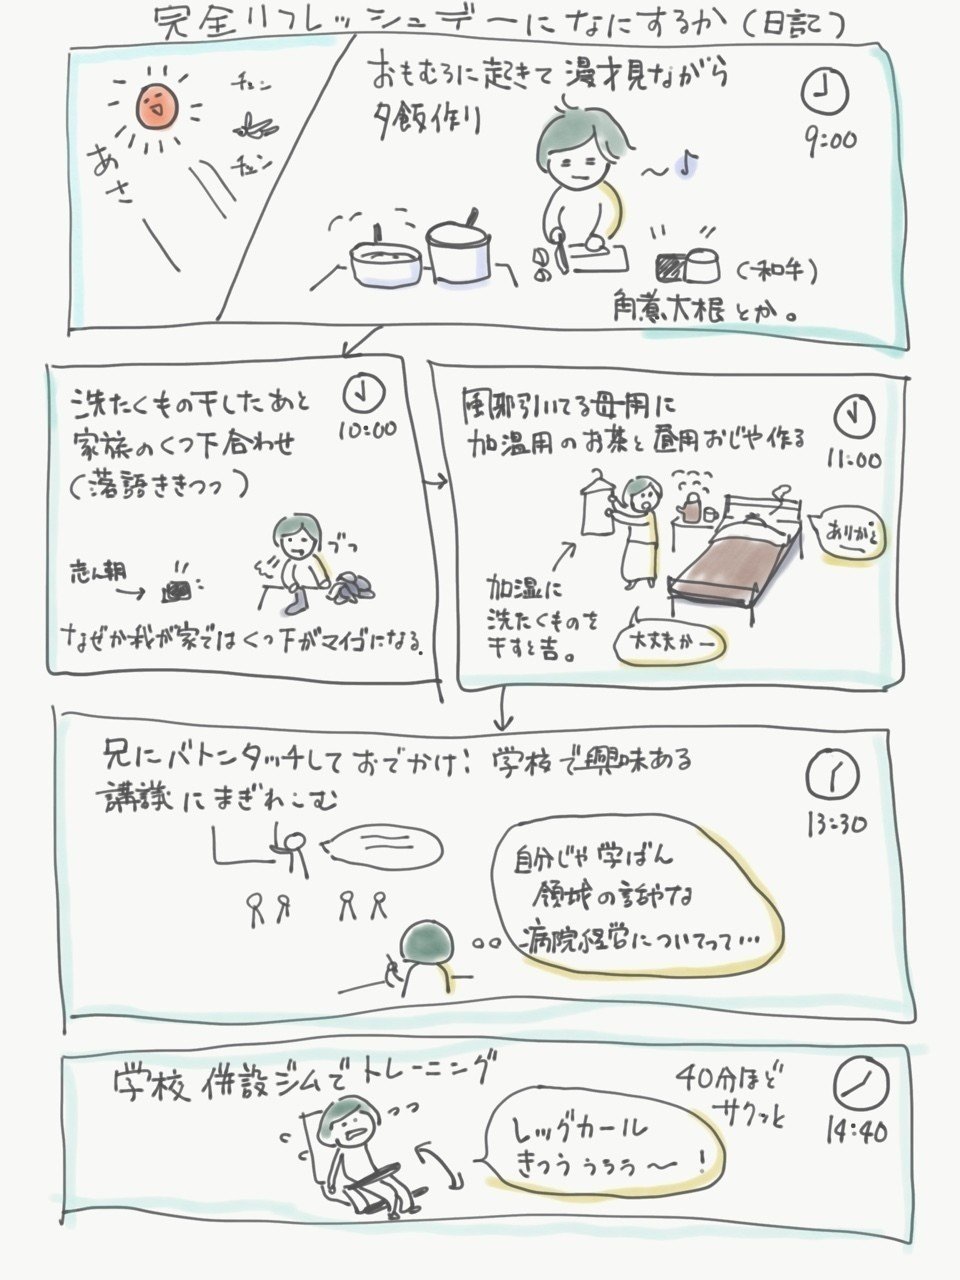 完全リフレッシュデーになにするか(日記)
チュン
チュン
あさ
おもむろに起きて漫才見ながら
夕飯作り
9:00
(和牛)
角煮大根とか。
洗たくもの干したあと
家族のくつ下合わせ
(落語ききつつ)
10:00
志ん朝
づっ
なぜか我が家ではくつ下がマイゴになる.
風邪引いてる母用に
加温用のお茶と昼用おじや作る
11:00
ありがと
加湿に
洗たくものを
干すと吉。
大丈夫かー
兄にバトンタッチしておでかけ: 学校で興味ある
講議にまぎれこむ
13:30
自分じゃ学ばん
領域の話やな
病院経営についてって…
学校併設ジムでトレーニング
40分ほど
サクッと
14:40
レッグカール
きつうぅぅぅ〜!